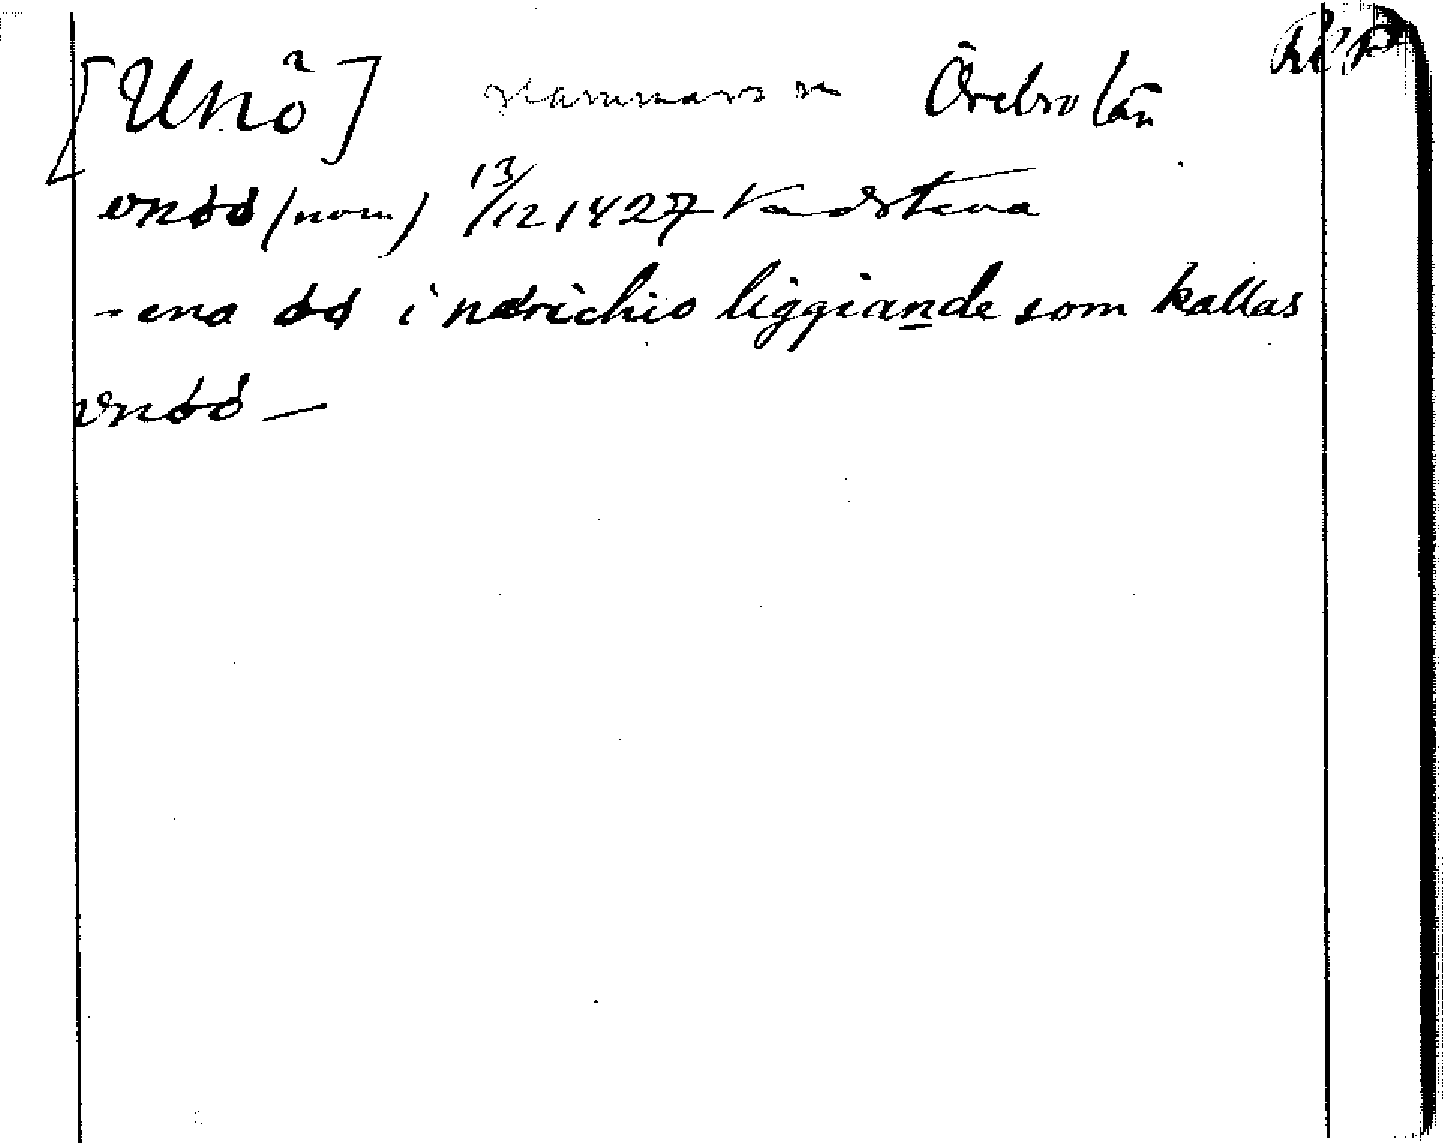 [Unö] Hammars sn Örebro län
vnøø (nom) 13/12 1427 Vadstena
- ena øø i nærichio liggiande som kallas
vnøø —